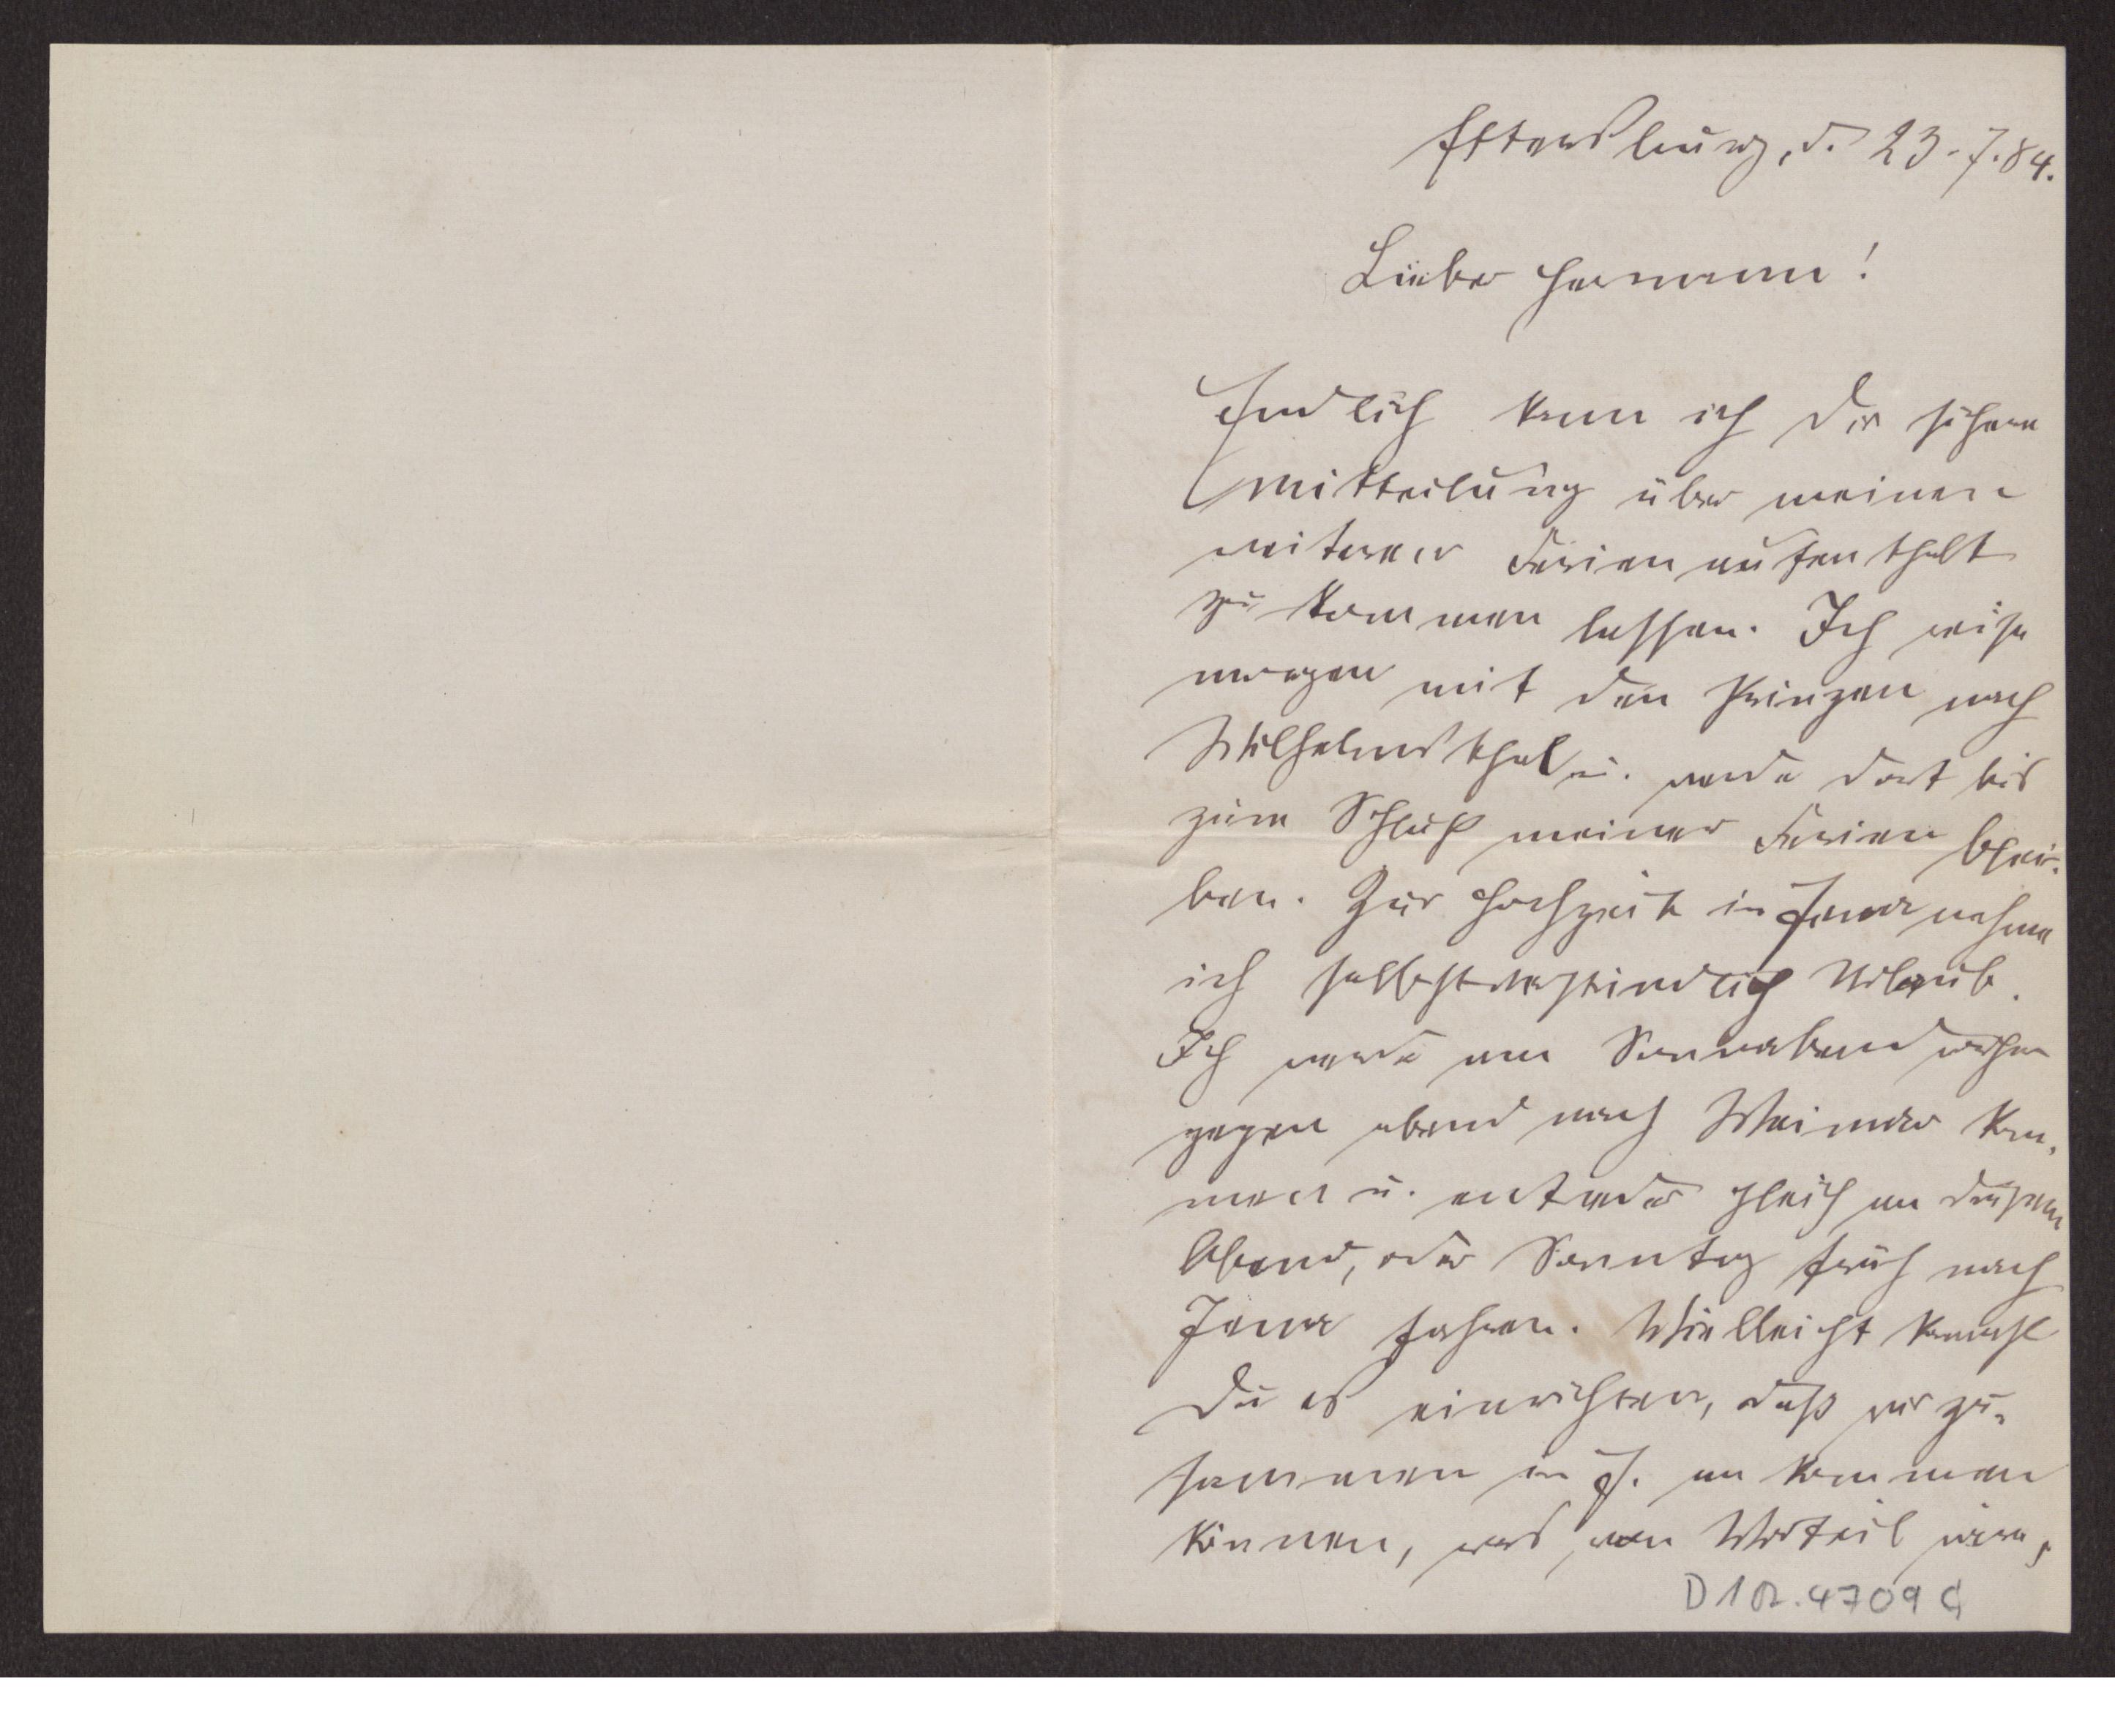 Ettersburg, d. 23.7.84.
Lieber Hermann!
Endlich kann ich Dir sichere
Mitteilung über meinen
weiteren Ferienaufenthalt
zu kommen lassen. Ich reise
morgen mit den Prinzen nach
Wilhelmsthal u. werde dort bis
zum Schluß meiner Ferien blei-
ben. Zur Hochzeit in Jena nehme
ich selbstverständlich Urlaub.
Ich werde am Sonnabend
gegen abend nach Weimar kom-
men u. entweder gleich an diesem
Abend, oder Sonntag früh nach
Jena fahren. Vielleicht kannst
Du es einrichten, daß wir zu-
sammen in J. an kommen
können, was von Vorteil wäre,
D 1 R. 4709 C